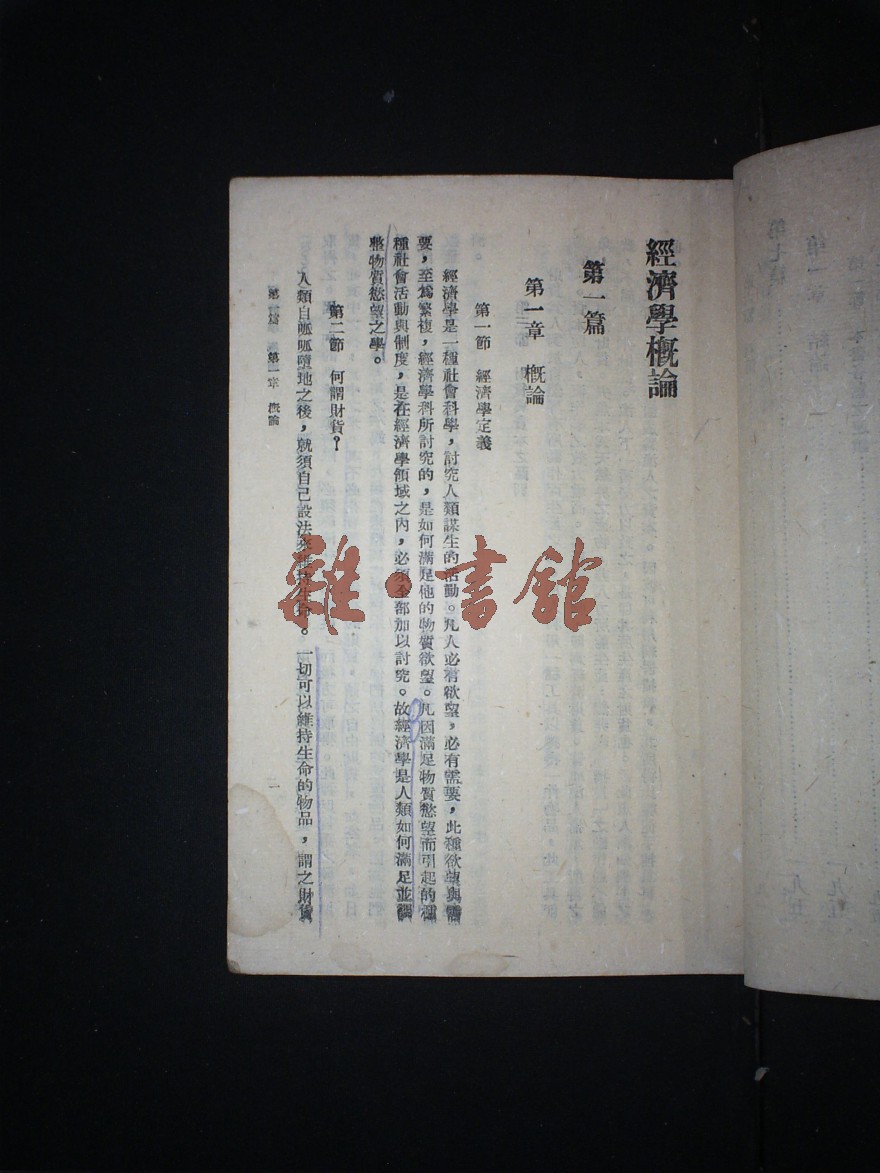 經濟學概論
第一篇
第一章　概論
第一節　經濟學定義
經濟學是一種社會科學，討究人類謀生的活動。凡人必有欲望，必有需要，此種欲望與需
要，至爲繁複，經濟學科所討究的，是如何滿足他的物質欲望。凡因滿足物質慾望而引起的種
種社會活動與制度，是在經濟學領域之內，必須全部加以討究。故經濟學是人類如何滿足並調
整物質慾望之學。
第二節　何謂財貨？
人類自呱呱墮地之後，就須自己設法來維持生命。一切可以維持生命的物品，謂之財貨
第一篇　第一章　概論
一
雜·書館
第七
第一
九五
九七